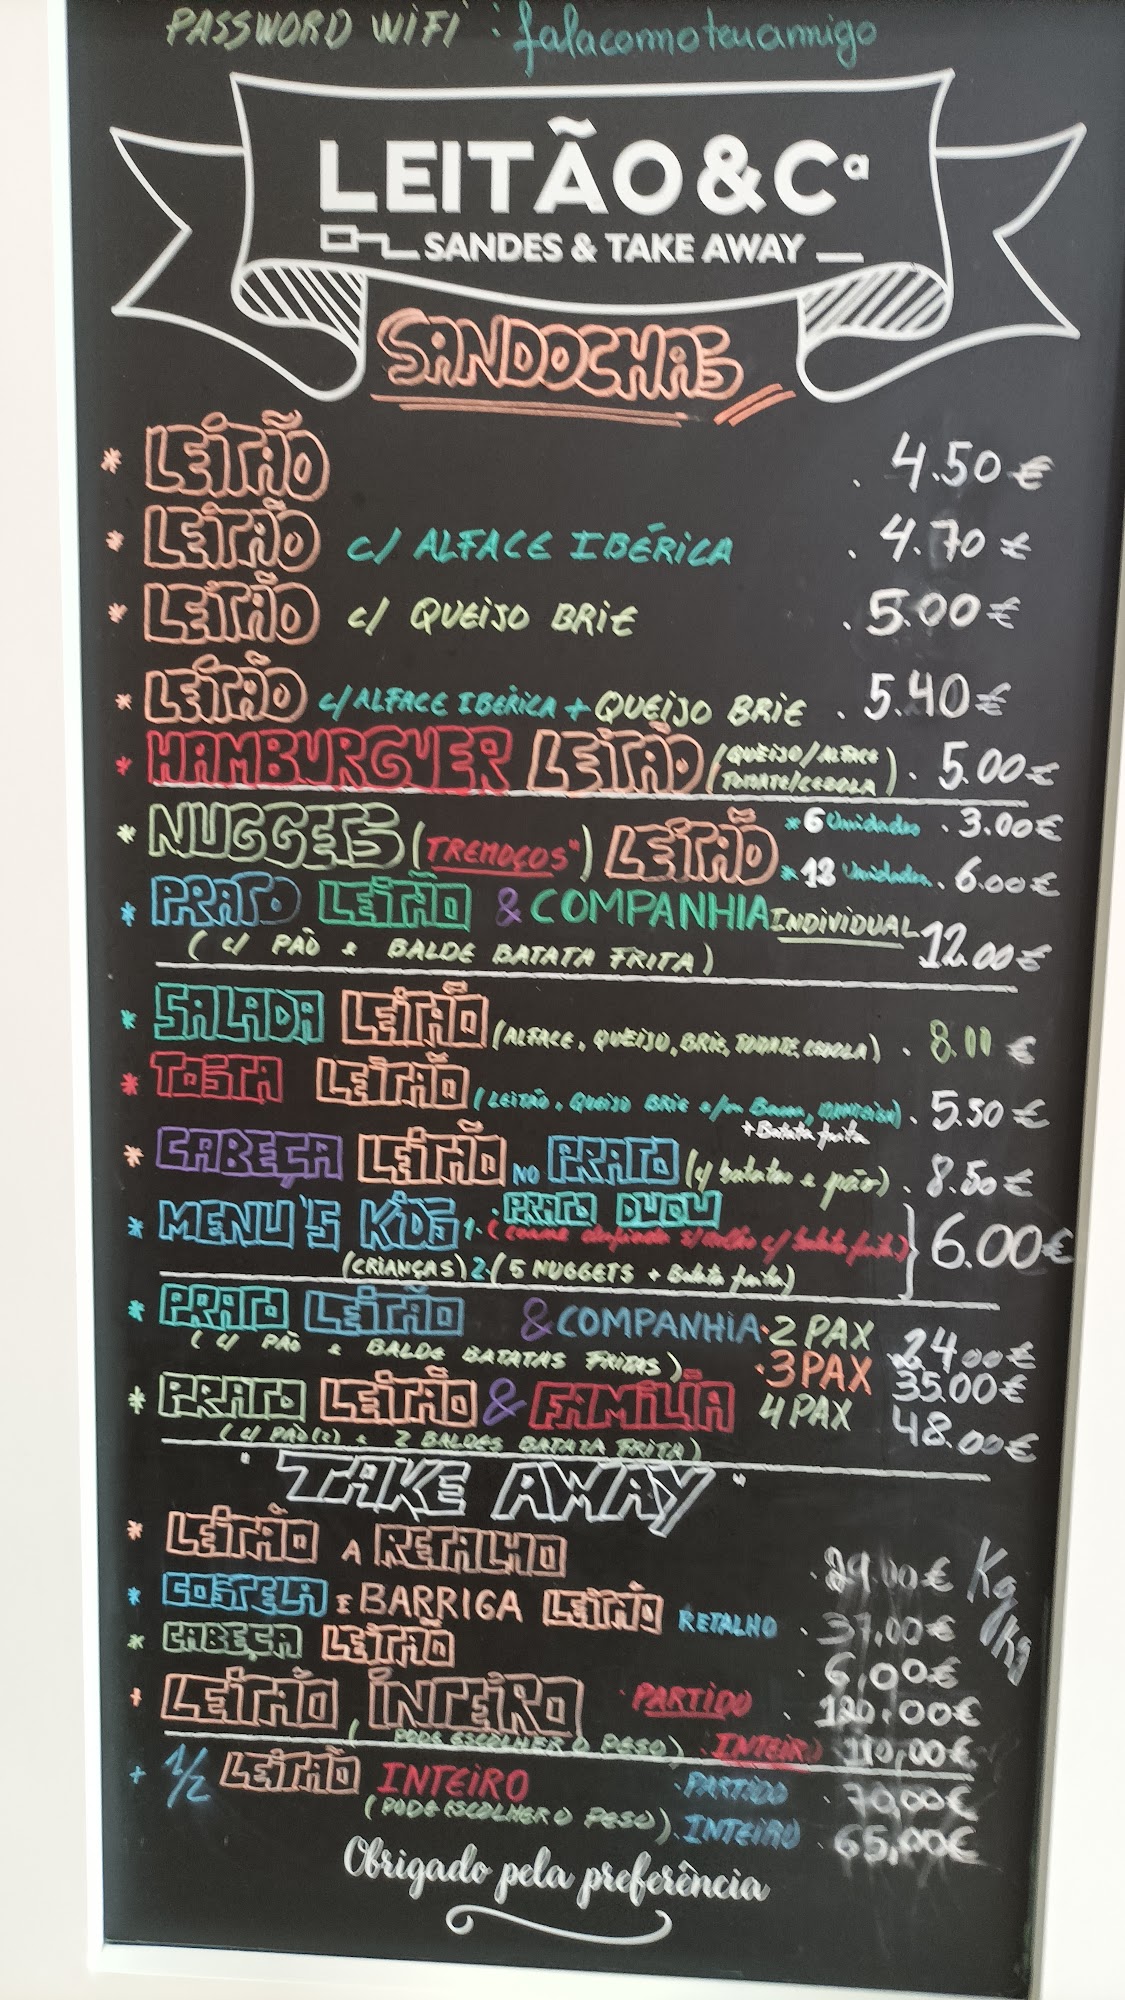 PASSWORD WIFI : falacomoteuamigo
LEITÃO&Cª
SANDES & TAKE AWAY
SANDOCHAS
* LEITÃO . 4.50€
* LEITÃO c/ ALFACE IBÉRICA . 4.70€
* LEITÃO c/ QUEIJO BRIE . 5.00€
* LEITÃO c/ ALFACE IBÉRICA + QUEIJO BRIE . 5.40€
* HAMBURGUER LEITÃO (QUEIJO/ALFACE TOMATE/CEBOLA) . 5.00€
* NUGGETS (TREMOÇOS") LEITÃO * 6 Unidades . 3.00€
* 12 Unidades . 6.00€
* PRATO LEITÃO & COMPANHIA INDIVIDUAL 12.00€
( c/ PÃO e BALDE BATATA FRITA )
* SALADA LEITÃO (ALFACE, QUEIJO, BRIE, TOMATE, CEBOLA) . 8.00 €
* TOSTA LEITÃO (LEITÃO, QUEIJO BRIE MANTEIGA) . 5.50€
+ Batata frita
* CABEÇA LEITÃO NO PRATO (c/ batatas e pão) . 8.50€
* MENU'S KIDS 1. PRATO DUDU
(carne c/ batata frita) } 6.00€
(CRIANÇAS) 2. (5 NUGGETS + Batata frita)
* PRATO LEITÃO & COMPANHIA . 2 PAX 24.00€
( c/ PÃO e BALDE BATATAS FRITAS ) . 3 PAX 35.00€
* PRATO LEITÃO & FAMÍLIA 4 PAX 48.00€
( c/ PÃO(2) e 2 BALDES BATATA FRITA )
"TAKE AWAY"
* LEITÃO A RETALHO . 29.00€ Kg
* COSTELA E BARRIGA LEITÃO RETALHO . 37,00€ Kg
* CABEÇA LEITÃO 6,00€
+ LEITÃO INTEIRO . PARTIDO . 120,00€
( PODE ESCOLHER O PESO ) . INTEIRO 110,00€
+ 1/2 LEITÃO INTEIRO . PARTIDO . 70,00€
( PODE ESCOLHER O PESO ) . INTEIRO . 65,00€
Obrigado pela preferência